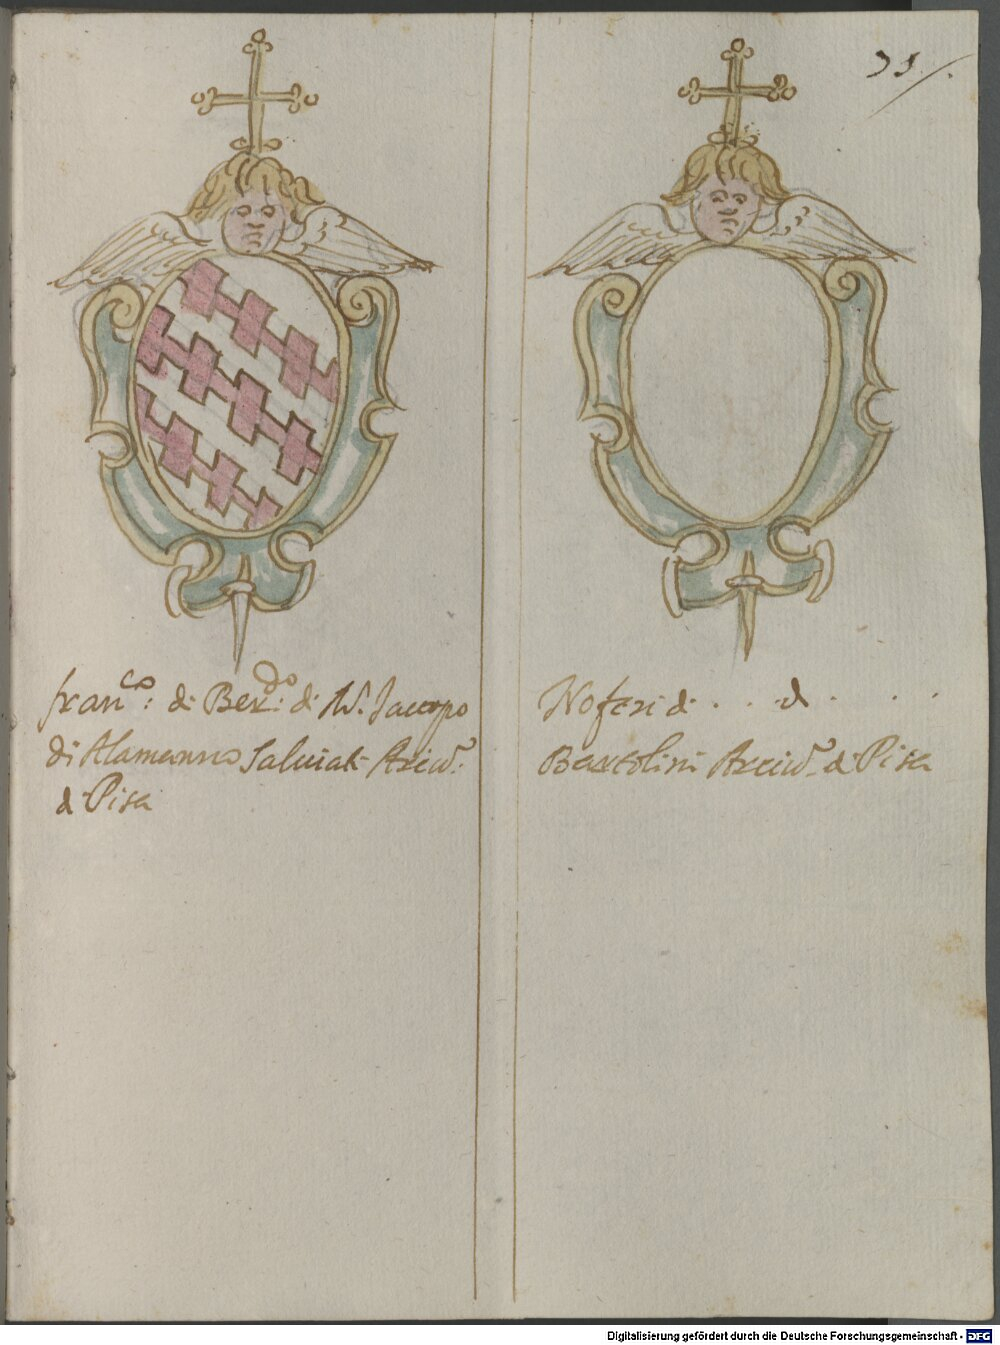 31.
fran^co: di Ber^do: di M. Jacopo
di Alamanno Salviati Arciv^o:
di Pisa
Noferi di . . . di . . .
Bartolini Arciv^o. di Pisa
Digitalisierung gefördert durch die Deutsche Forschungsgemeinschaft - DFG